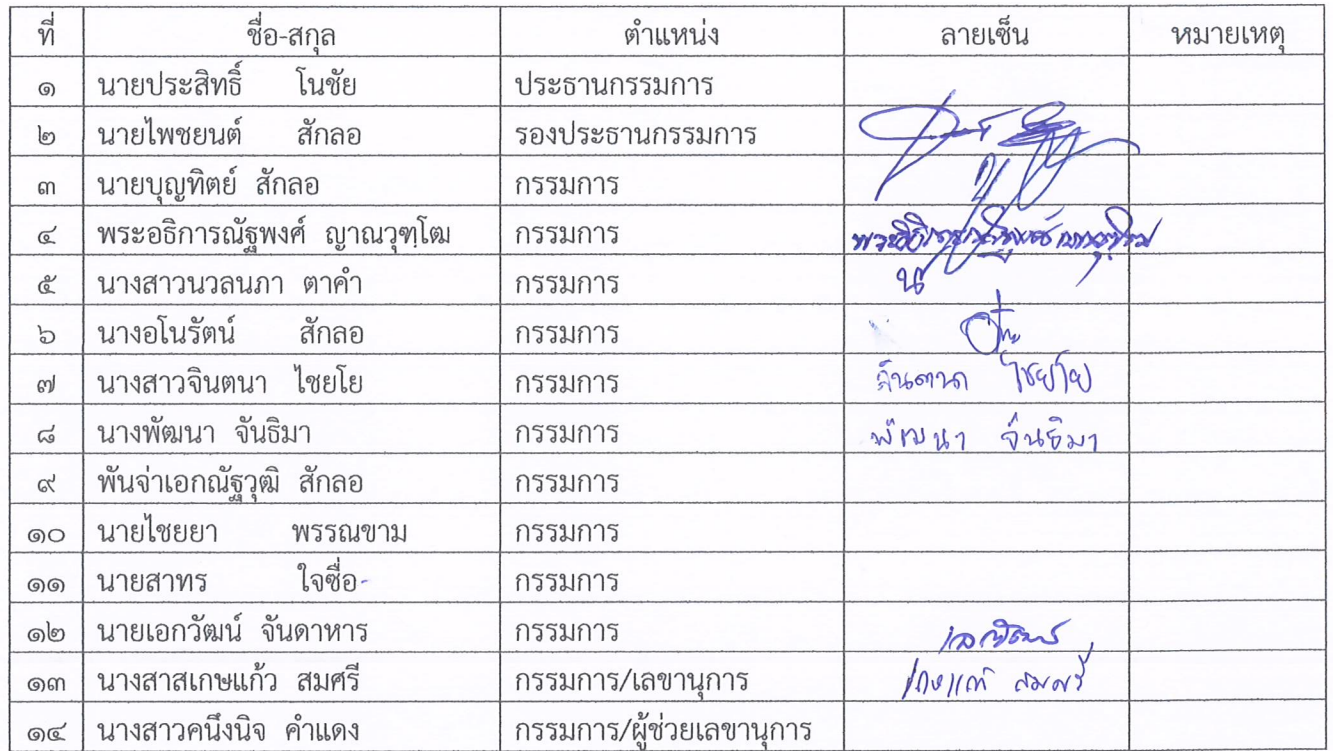 ที่ ชื่อ-สกุล ตำแหน่ง ลายเซ็น หมายเหตุ
๑ นายประสิทธิ์ โนชัย ประธานกรรมการ
๒ นายไพชยนต์ สักลอ รองประธานกรรมการ
๓ นายบุญทิตย์ สักลอ กรรมการ
๔ พระอธิการณัฐพงศ์ ญาณวุฑฺโฒ กรรมการ
๕ นางสาวนวลนภา ตาคำ กรรมการ
๖ นางอโนรัตน์ สักลอ กรรมการ
๗ นางสาวจินตนา ไชยโย กรรมการ จินตนา ไชยโย
๘ นางพัฒนา จันธิมา กรรมการ พัฒนา จันธิมา
๙ พันจ่าเอกณัฐวุฒิ สักลอ กรรมการ
๑๐ นายไชยยา พรรณขาม กรรมการ
๑๑ นายสาทร ใจซื่อ กรรมการ
๑๒ นายเอกวัฒน์ จันดาหาร กรรมการ
๑๓ นางสาสเกษแก้ว สมศรี กรรมการ/เลขานุการ เกษแก้ว สมศรี
๑๔ นางสาวคนึงนิจ คำแดง กรรมการ/ผู้ช่วยเลขานุการ